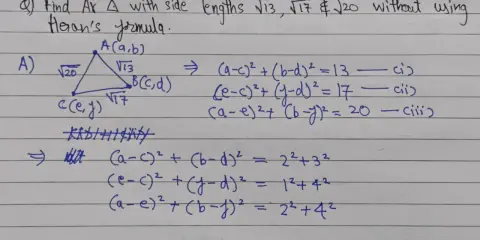 Q) Find Ar △ with side lengths √13, √17 & √20 without using
Heron's formula.
A(a,b)
A)
√20
√13
B(c,d)
√17
C(e,f)
⇒ (a-c)² + (b-d)² = 13 — (i)
(e-c)² + (f-d)² = 17 — (ii)
(a-e)² + (b-f)² = 20 — (iii)
⇒ (a-c)² + (b-d)² = 2² + 3²
(e-c)² + (f-d)² = 1² + 4²
(a-e)² + (b-f)² = 2² + 4²